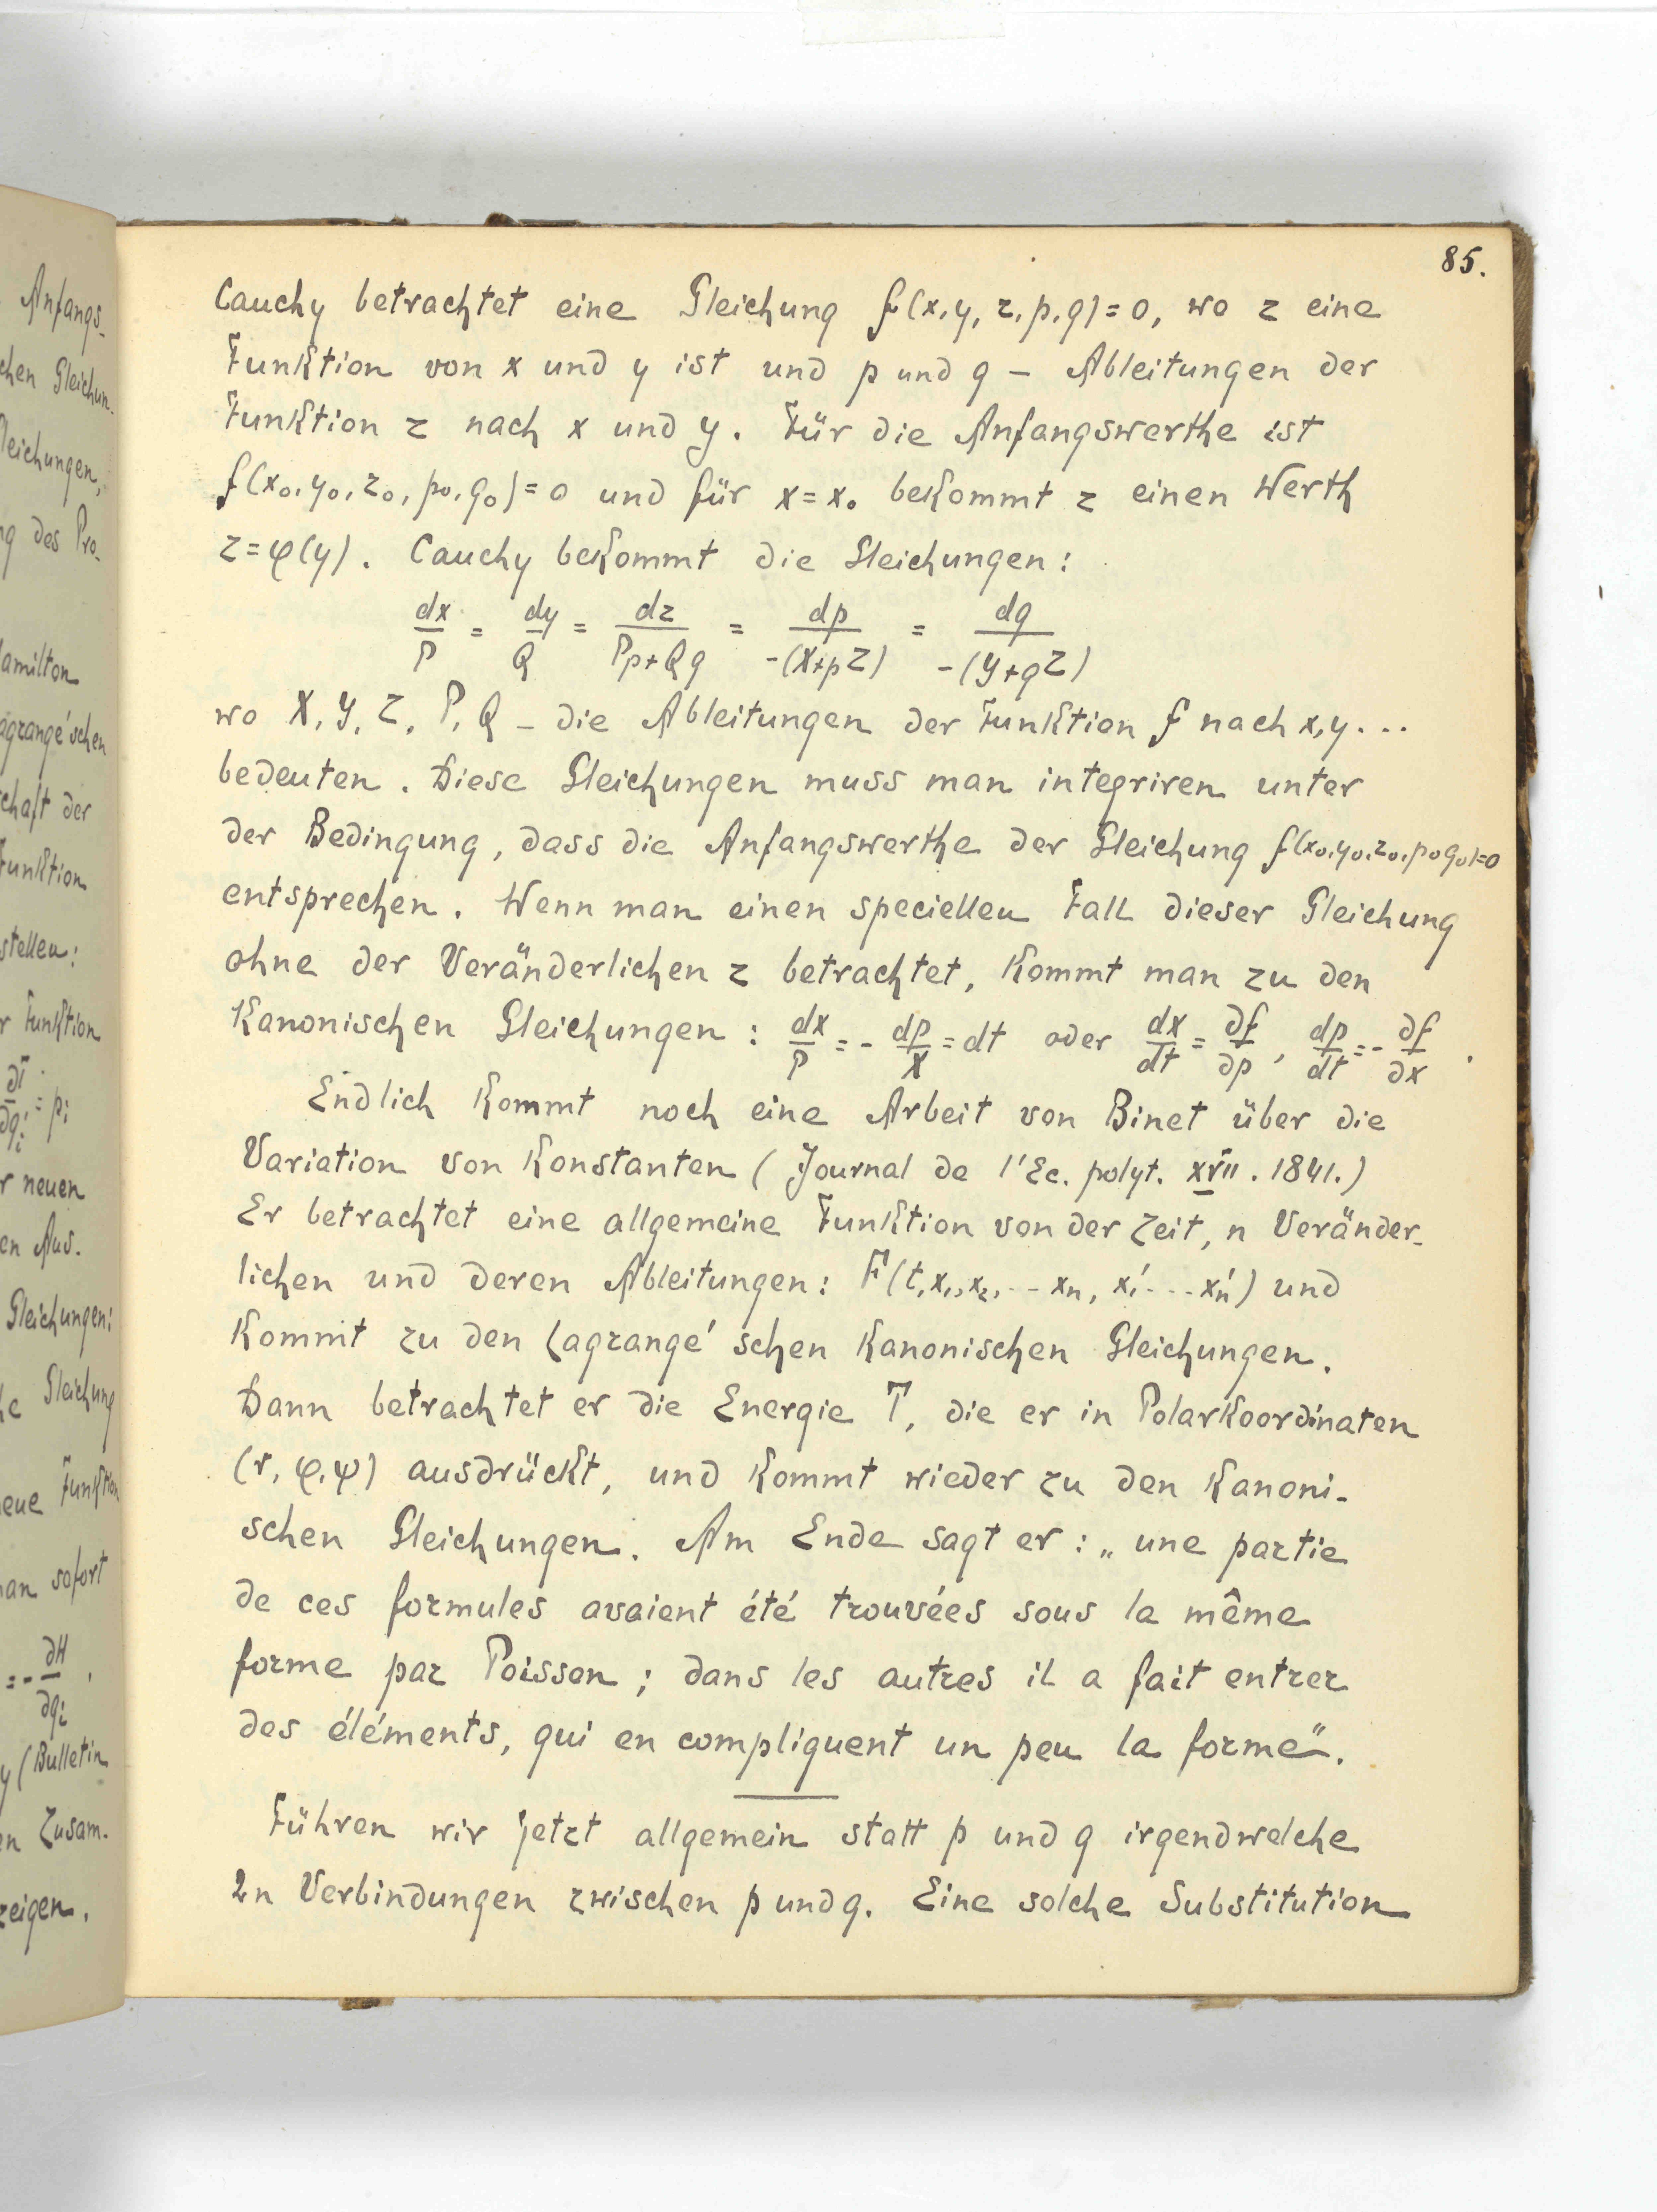 85.
Cauchy betrachtet eine Gleichung f(x, y, z, p, q) = 0, wo z eine
Funktion von x und y ist und p und q – Ableitungen der
Funktion z nach x und y. Für die Anfangswerthe ist
f(x₀, y₀, z₀, p₀, q₀) = 0 und für x = x₀ bekommt z einen Werth
z = φ(y). Cauchy bekommt die Gleichungen:
dx/P = dy/Q = dz/(Pp+Qq) = dp/-(X+pZ) = dq/-(Y+qZ)
wo X, Y, Z, P, Q – die Ableitungen der Funktion f nach x, y...
bedeuten. Diese Gleichungen muss man integriren unter
der Bedingung, dass die Anfangswerthe der Gleichung f(x₀, y₀, z₀, p₀ q₀) = 0
entsprechen. Wenn man einen speciellen Fall dieser Gleichung
ohne der Veränderlichen z betrachtet, kommt man zu den
Kanonischen Gleichungen: dx/P = - dp/X = dt oder dx/dt = ∂f/∂p, dp/dt = - ∂f/∂x.
Endlich kommt noch eine Arbeit von Binet über die
Variation von Konstanten (Journal de l'Ec. polyt. XVII. 1841.)
Er betrachtet eine allgemeine Funktion von der Zeit, n Veränder-
lichen und deren Ableitungen: F(t, x₁, x₂, ... xn, x₁' ... xn') und
kommt zu den Lagrangé'schen Kanonischen Gleichungen.
Dann betrachtet er die Energie T, die er in Polarkoordinaten
(r, φ, ψ) ausdrückt, und kommt wieder zu den Kanoni-
schen Gleichungen. Am Ende sagt er: „une partie
de ces formules avaient été trouvées sous la même
forme par Poisson; dans les autres il a fait entrer
des éléments, qui en compliquent un peu la forme“.
Führen wir jetzt allgemein statt p und q irgendwelche
2n Verbindungen zwischen p und q. Eine solche Substitution
Anfangs-
chen Gleichun-
leichungen,
ng des Pro-
amilton
agrangé'schen
chaft der
Funktion
stellen:
r Funktion
∂T/∂qi' = pi
r neuen
en Aus-
Gleichungen:
he Gleichung
neue Funktion
an sofort
= - ∂H/∂qi,
y (Bulletin
en Zusam-
zeigen.